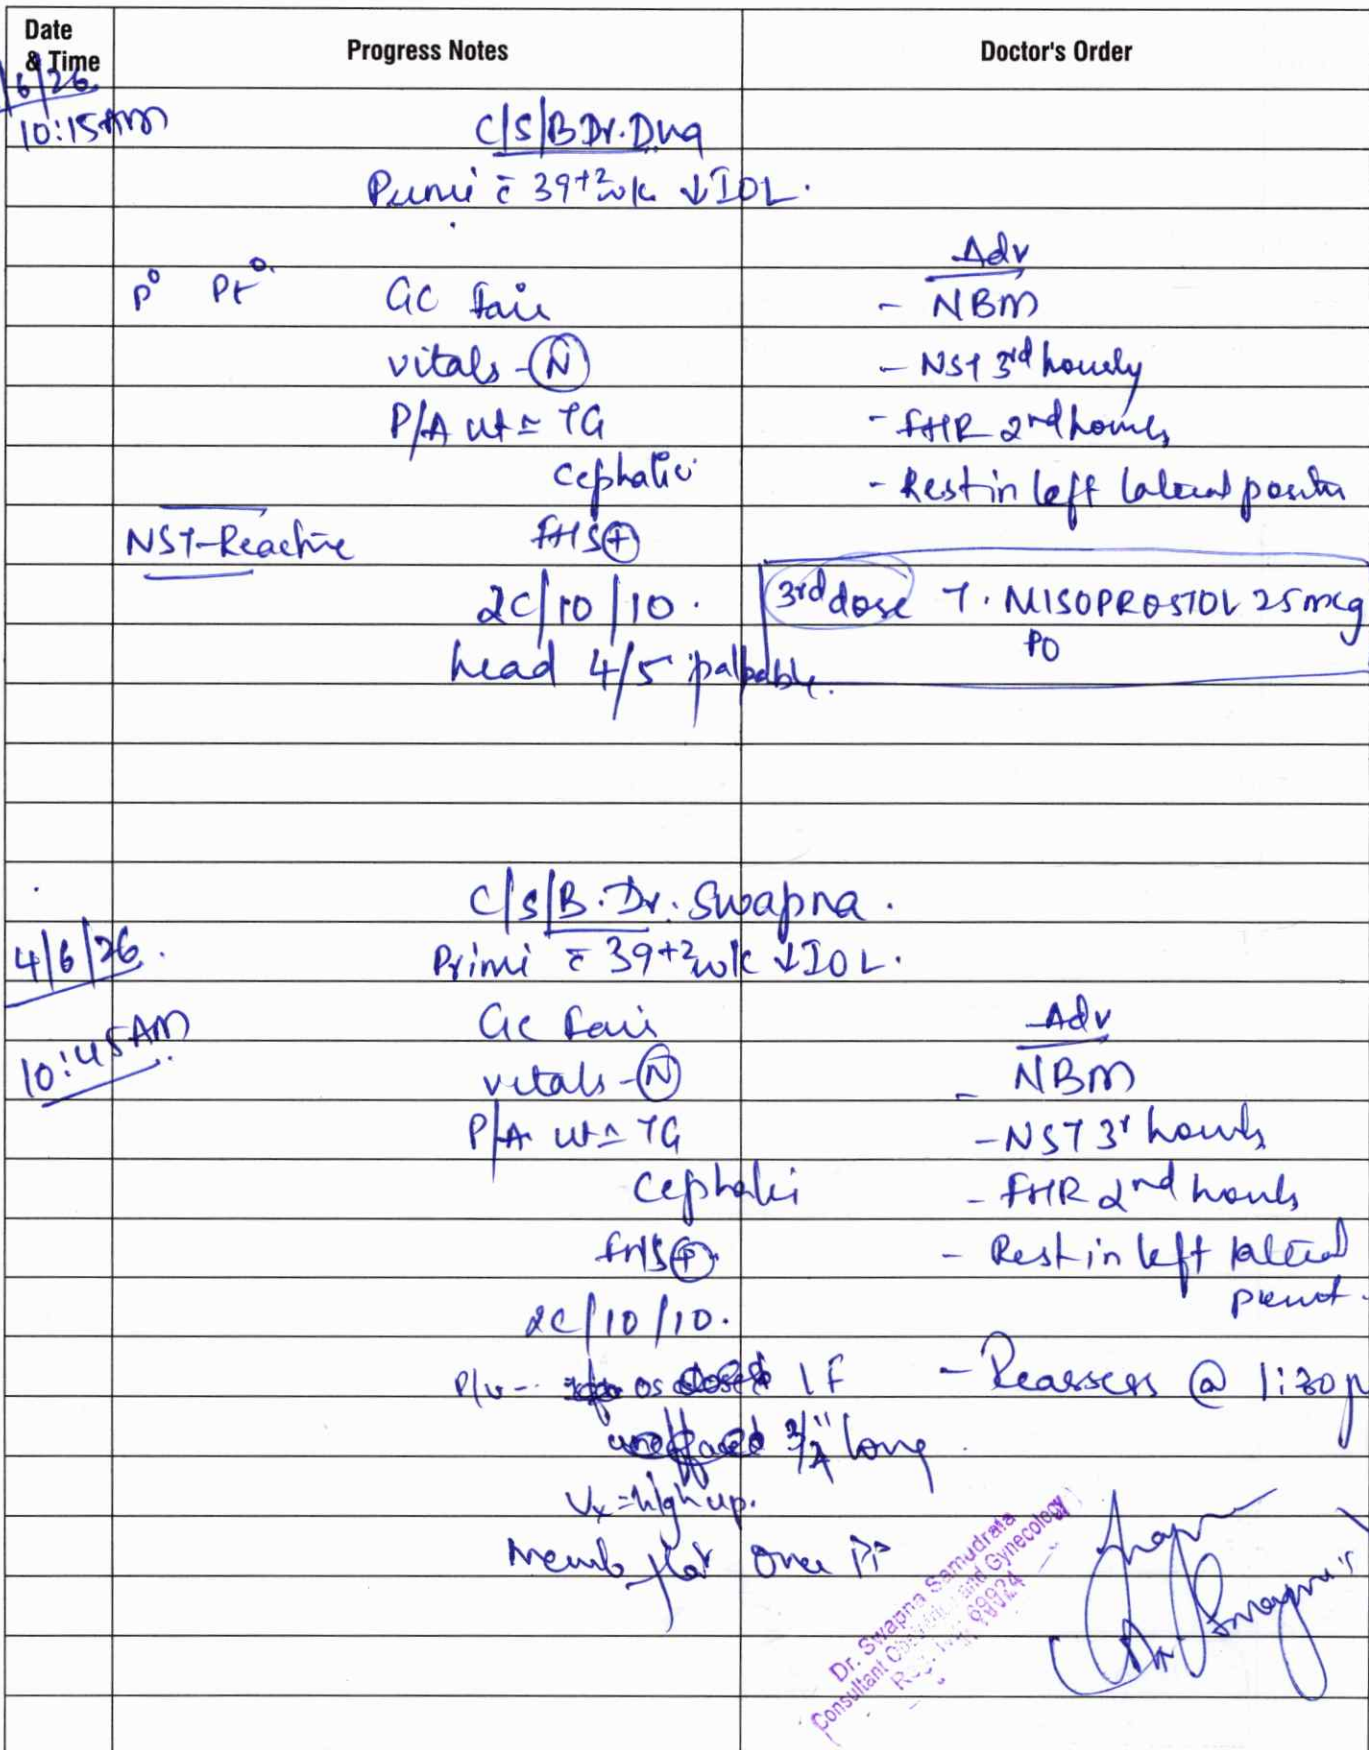 Date & Time Progress Notes Doctor's Order
6/26
10:15AM C/S/B Dr. Dua
Primi c̄ 39+2 wk ↓IOL.
Adv
P° Pr° GC Fair - NBM
vitals - Ⓝ - NST 3rd hourly
P/A ut ≃ TG - FHR 2nd hourly
Cephalic - Rest in left lateral position
NST-Reactive FHS⊕
2C/10/10. 3rd dose T. MISOPROSTOL 25 mcg
head 4/5 palpable. PO
C/S/B. Dr. Swapna.
4/6/26. Primi c̄ 39+2 wk ↓IOL.
GC Fair Adv
10:45AM vitals - Ⓝ - NBM
P/A ut ≃ TG - NST 3r hourly
Cephalic - FHR 2nd hourly
FHS⊕ - Rest in left lateral
2C/10/10.
P/v - os 1F - Reassess @ 1:30p
3/4" long
Vx = high up.
Memb flat over PP
Dr. Swapna Samudrala
Consultant Obstetrics and Gynecology